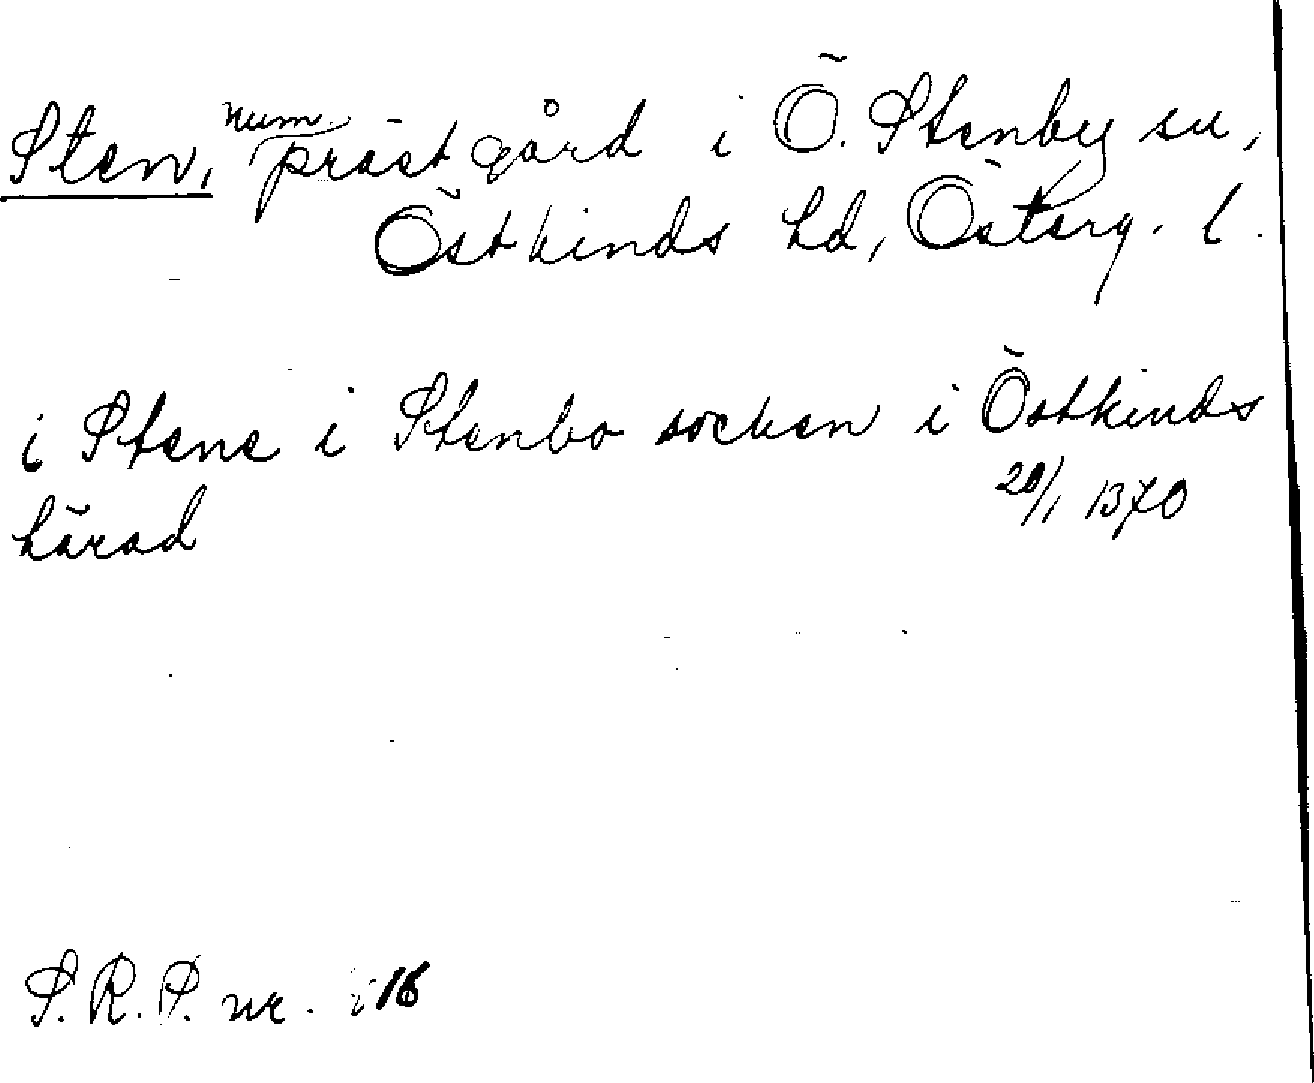 Sten, num prästgård i Ö. Stenby sn,
Östkinds hd, Österg. l.
i Stene i Stenbo socken i Östkinds
härad 20/1 1370
S.R.P. nr.